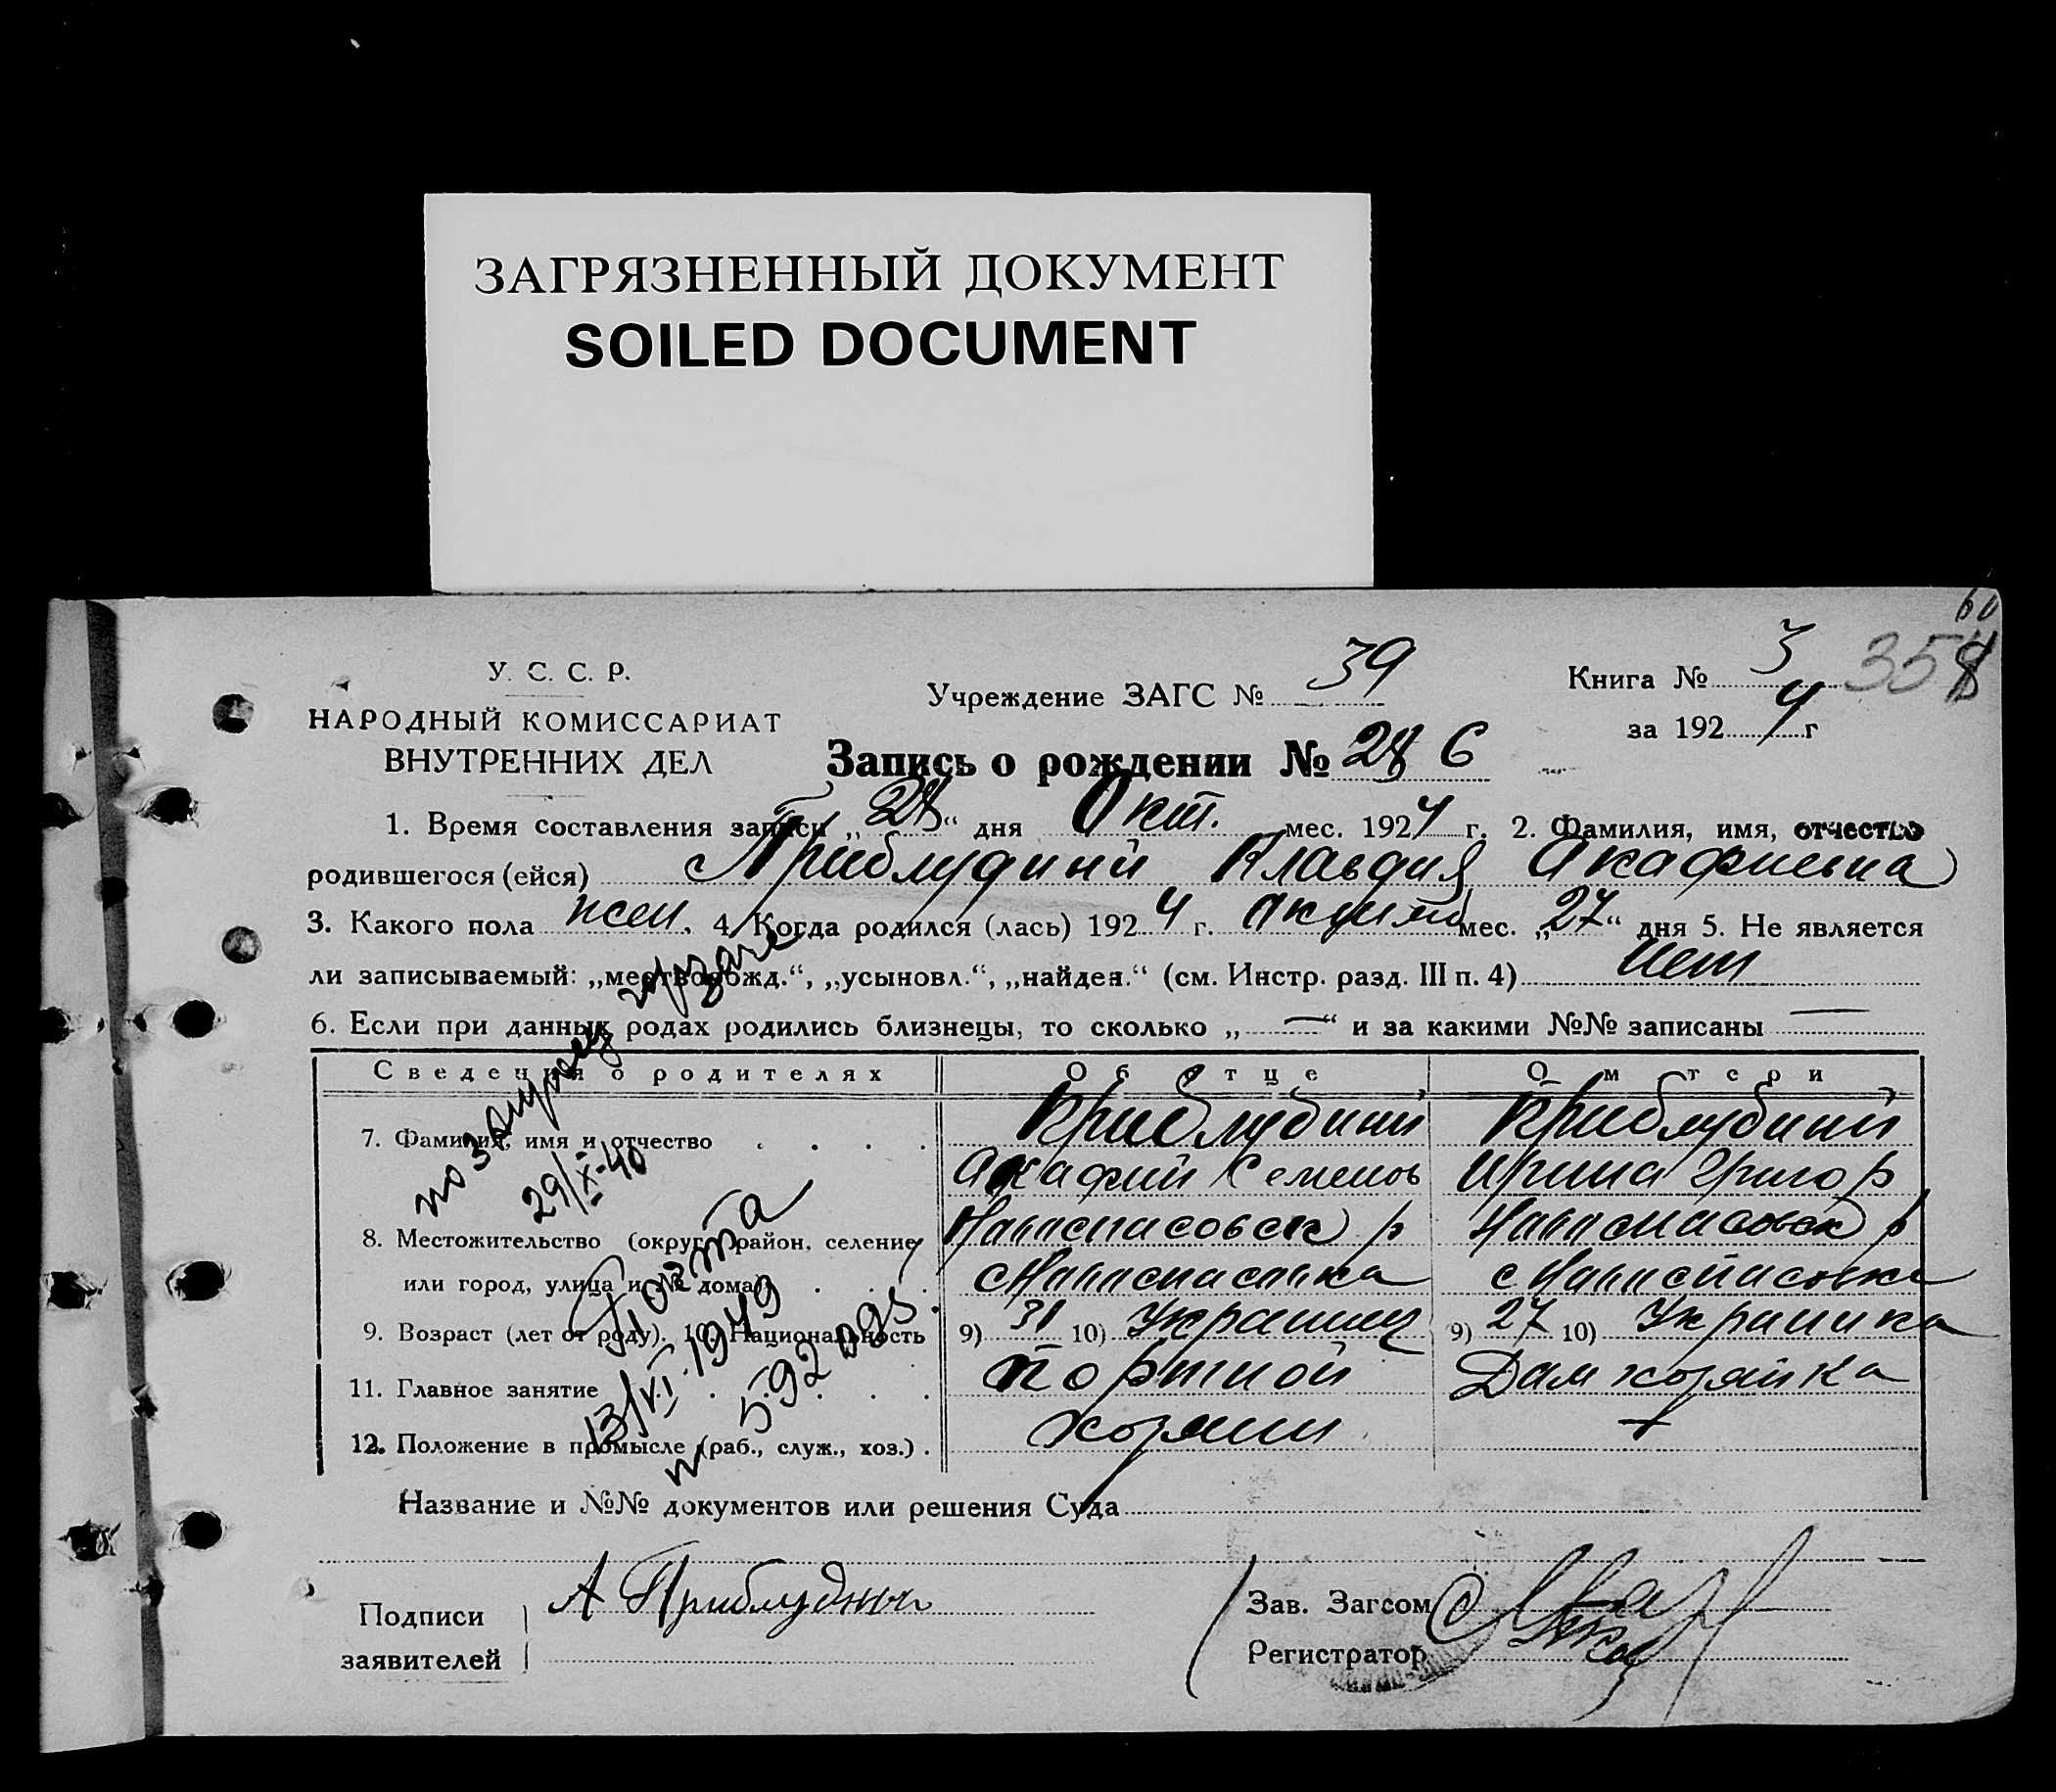 ЗАГРЯЗНЕННЫЙ ДОКУМЕНТ
SOILED DOCUMENT
У. С. С. Р.
НАРОДНЫЙ КОМИССАРИАТ
ВНУТРЕННИХ ДЕЛ
Учреждение ЗАГС № 39
Книга № 3
за 192 4 г
Запись о рождении № 286
1. Время составления записи „28“ дня Окт. мес. 1924 г. 2. Фамилия, имя, отчество
родившегося (ейся) Приблудний Клавдия Акафиевна
3. Какого пола жен. 4. Когда родился (лась) 1924 г. мес. „27“ дня 5. Не является
ли записываемый: „мертворожд.“, „усыновл.“, „найден.“ (см. Инстр. разд. III п. 4) Нет
6. Если при данных родах родились близнецы, то сколько „—“ и за какими №№ записаны —
Сведения о родителях Об отце О м тери
7. Фамилия, имя и отчество . . . . Приблудний Приблудний
Акафий Семенов Ирина Григор
8. Местожительство (округ, район, селение
или город, улица и № дома) . . .
9. Возраст (лет от роду). 10. Национальность 9) 31 10) Украинец 9) 27 10) Украинка
11. Главное занятие . . . . Портной Дом хозяйка
12. Положение в промысле (раб., служ., хоз.) . хозяин +
Название и №№ документов или решения Суда
29/X-40
Почта
13/VI-1949
№ 592
Подписи
заявителей
А Приблудный
Зав. Загсом
Регистратор